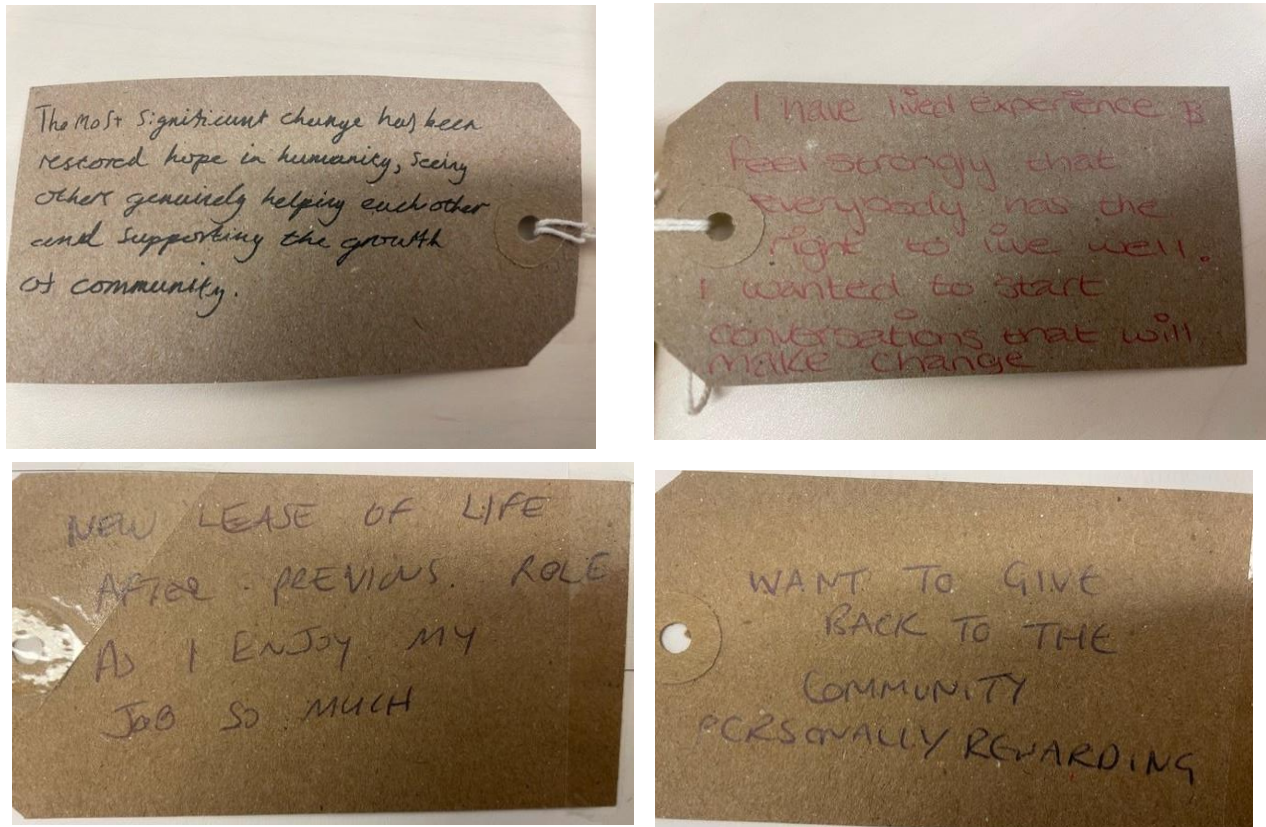 The most significant change has been
restored hope in humanity, seeing
others genuinely helping each other
and supporting the growth
of community.
I have lived experience &
feel strongly that
everybody has the
right to live well.
I wanted to start
conversations that will
make change
NEW LEASE OF LIFE
AFTER PREVIOUS ROLE
AS I ENJOY MY
JOB SO MUCH
WANT TO GIVE
BACK TO THE
COMMUNITY
PERSONALLY REWARDING